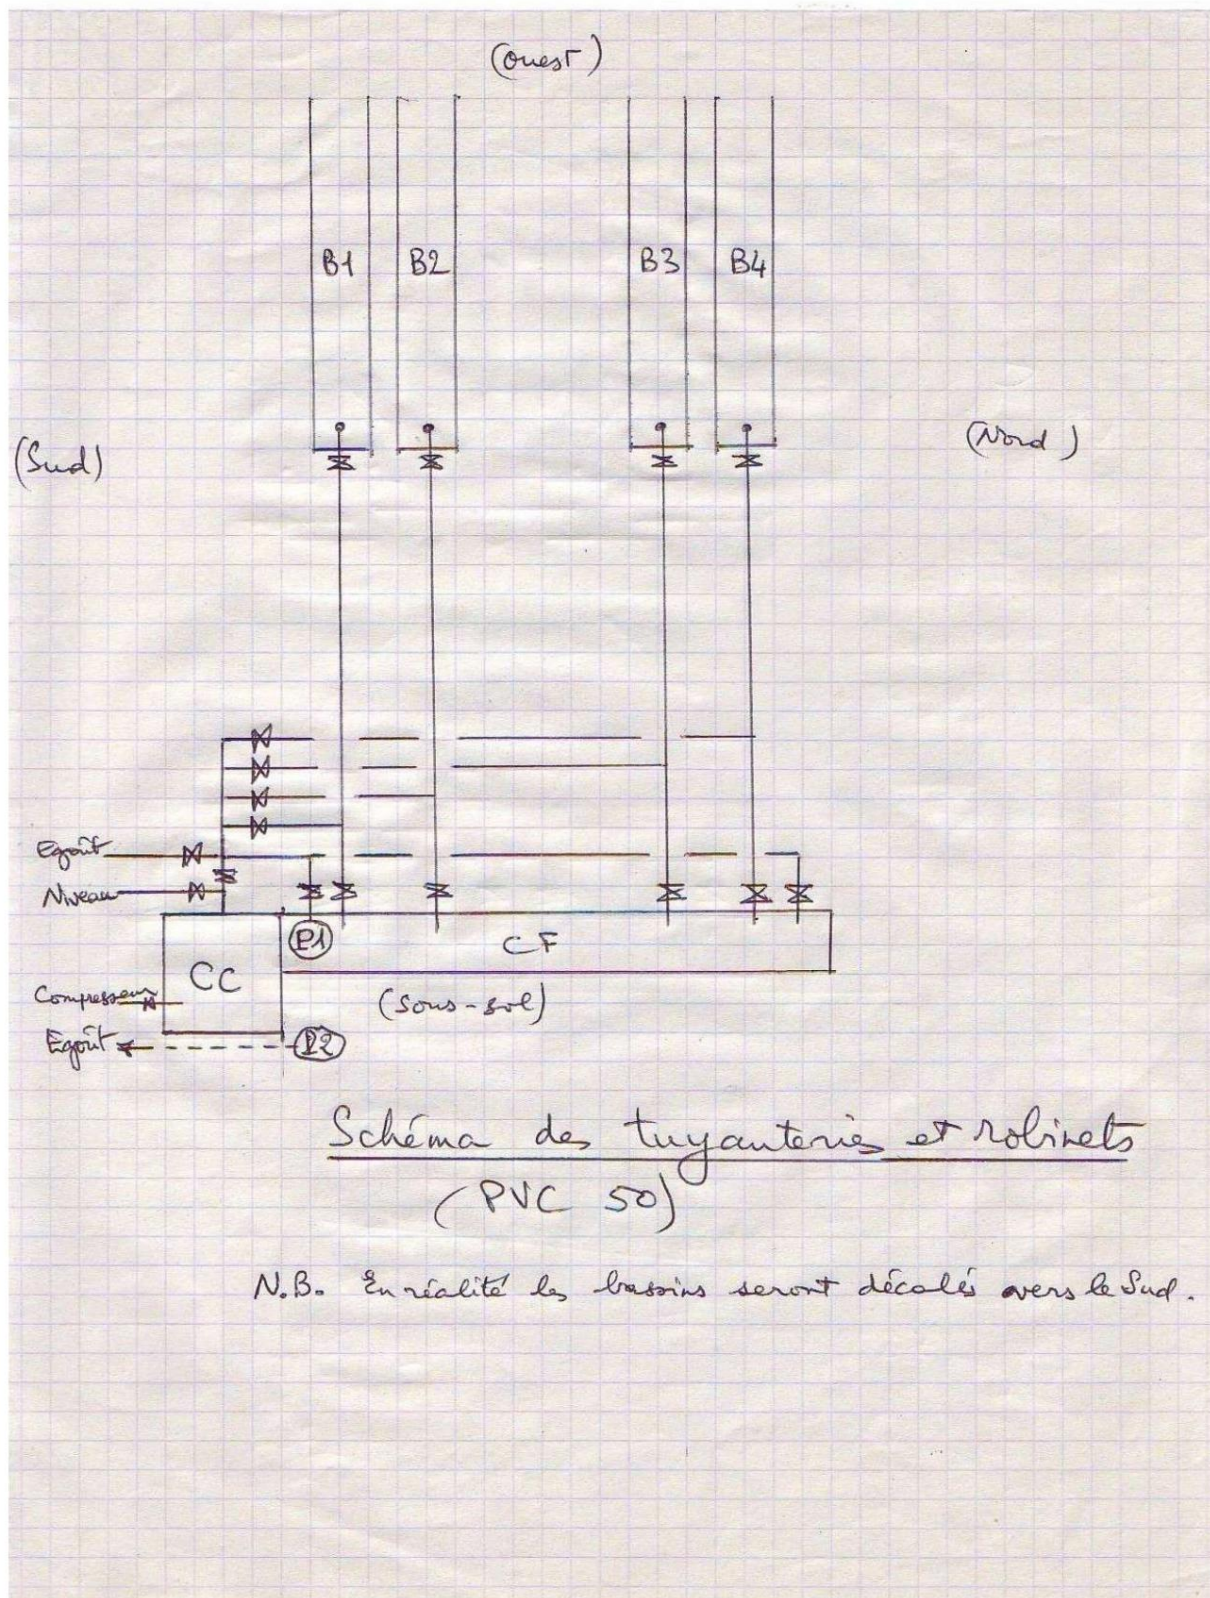 (ouest)
B1 B2 B3 B4
(Sud)
(Nord)
Egoût
Niveau
P1
CF
CC
Compresseur
(sous-sol)
Egoût
P2
Schéma des tuyauteries et robinets
(PVC 50)
N.B. En réalité les bassins seront décalés vers le Sud.